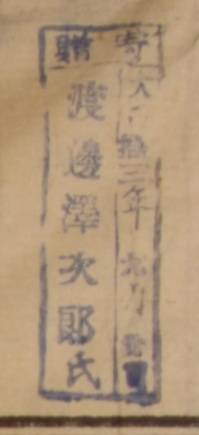 寄贈
大正拾三年九月
渡邊澤次郎氏